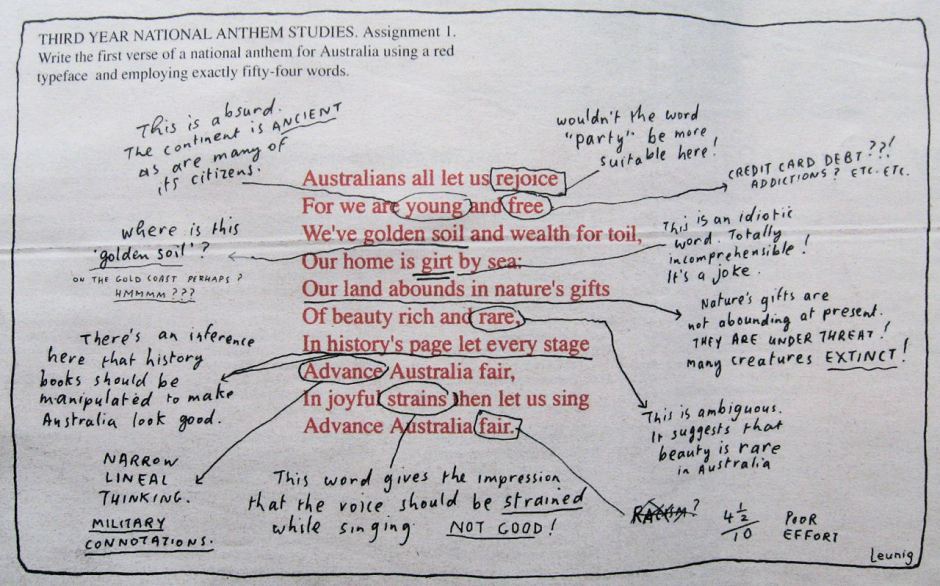 THIRD YEAR NATIONAL ANTHEM STUDIES. Assignment 1.
Write the first verse of a national anthem for Australia using a red
typeface and employing exactly fifty-four words.
This is absurd.
The continent is ANCIENT
as are many of
its citizens.
wouldn't the word
"party" be more
suitable here!
CREDIT CARD DEBT??!
ADDICTIONS? ETC. ETC.
Australians all let us rejoice
For we are young and free
We've golden soil and wealth for toil,
Our home is girt by sea:
Our land abounds in nature's gifts
Of beauty rich and rare,
In history's page let every stage
Advance Australia fair,
In joyful strains then let us sing
Advance Australia fair.
where is this
'golden soil'?
ON THE GOLD COAST PERHAPS?
HMMMM???
This is an idiotic
word. Totally
incomprehensible!
It's a joke.
Nature's gifts are
not abounding at present.
THEY ARE UNDER THREAT!
many creatures EXTINCT!
There's an inference
here that history
books should be
manipulated to make
Australia look good.
This is ambiguous.
It suggests that
beauty is rare
in Australia
NARROW
LINEAL
THINKING.
MILITARY
CONNOTATIONS.
This word gives the impression
that the voice should be strained
while singing. NOT GOOD!
RACISM?
4 1/2
/10
POOR
EFFORT
Leunig